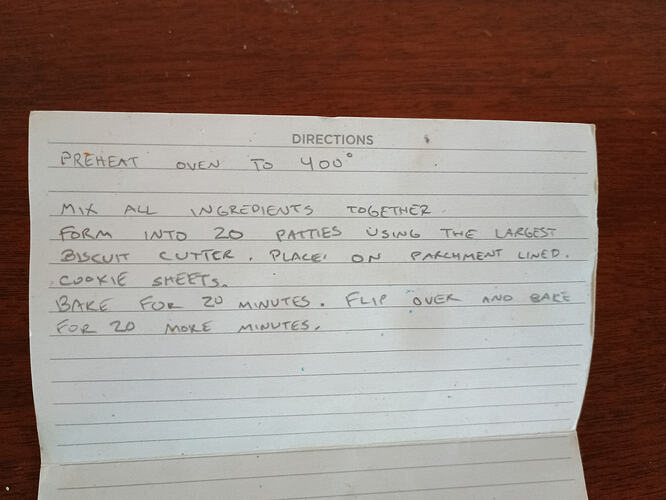 DIRECTIONS
PREHEAT OVEN TO 400°
MIX ALL INGREDIENTS TOGETHER.
FORM INTO 20 PATTIES USING THE LARGEST
BISCUIT CUTTER. PLACE ON PARCHMENT LINED.
COOKIE SHEETS.
BAKE FOR 20 MINUTES. FLIP OVER AND BAKE
FOR 20 MORE MINUTES.